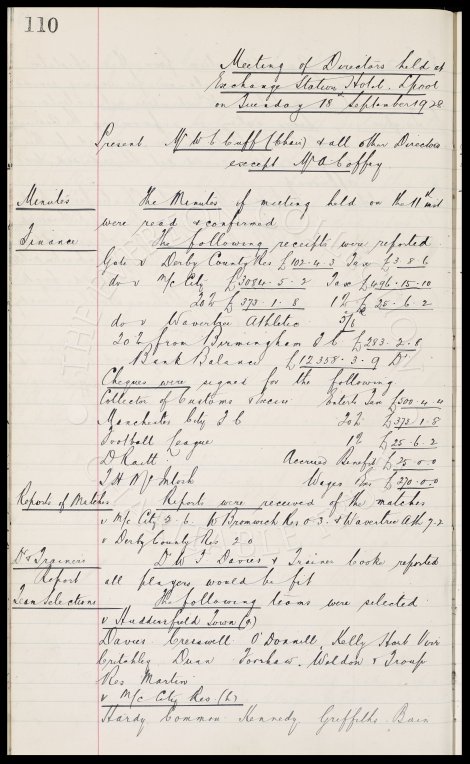 110
Meeting of Directors held at
Exchange Station Hotel. Lpool
on Tuesday 18th September 1928
Present Mr W C Cuff (Chair) & all other Directors
except Mr A Coffey
Minutes The Minutes of meeting held on the 11th inst
were read & confirmed
Finance The following receipts were reported
Gate v Derby County Res £102.4.3 Tax £3.8.6
do v M/c City £3084.5.2 Tax £496.15.10
20% £373.1.8 1% £25.6.2
do v Wavertree Athletic 3/6
20% from Birmingham F C £283.2.8
Bank Balance £12358.3.9 Dr
Cheques were signed for the following
Collector of Customs & Excise Entert. Tax £500.4.4
Manchester City F C 20% £373.1.8
Football League 1% £25.6.2
D Raitt Accrued Benefit £25.0.0
T H McIntosh Wages &c £270.0.0
Reports of Matches Reports were received of the matches
v M/c City 2.6. W Bromwich Res 0.3. & Wavertree Ath 7.2
v Derby County Res 2.0
Dr & Trainers Dr W F Davies & Trainer Cooke reported
Report all players would be fit
Team Selections The following teams were selected
v Huddersfield Town (a)
Davies Cresswell O'Donnell Kelly Hart Virr
Critchley Dunn Forshaw Weldon & Troup
Res Martin
v M/c City Res (h)
Hardy Common Kennedy Griffiths Bain